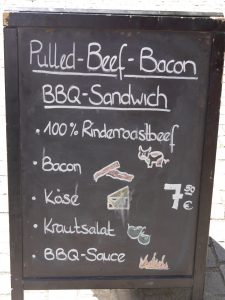 Pulled-Beef-Bacon
BBQ-Sandwich
• 100% Rinderroastbeef
• Bacon
• Käse
7,50 €
• Krautsalat
• BBQ-Sauce